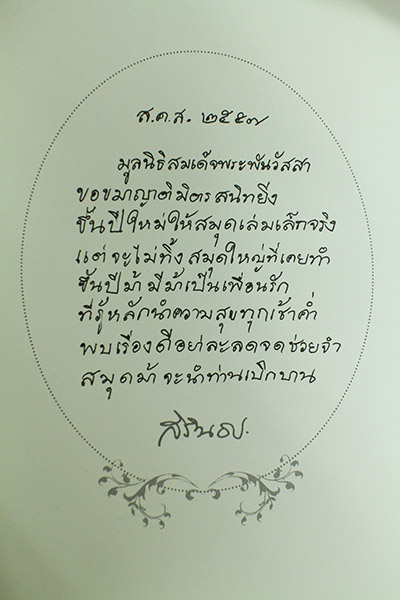 ส.ค.ส. ๒๕๕๗
มูลนิธิสมเด็จพระพันวัสสา
ขอขมาญาติมิตรสนิทยิ่ง
ขึ้นปีใหม่ให้สมุดเล่มเล็กจริง
แต่จะไม่ทิ้งสมุดใหญ่ที่เคยทำ
ขึ้นปีม้ามีม้าเป็นเพื่อนรัก
ที่รู้หลักนำความสุขทุกเช้าค่ำ
พบเรื่องดีอย่าละลดจดช่วยจำ
สมุดม้าจะนำท่านเบิกบาน
สิรินธร.